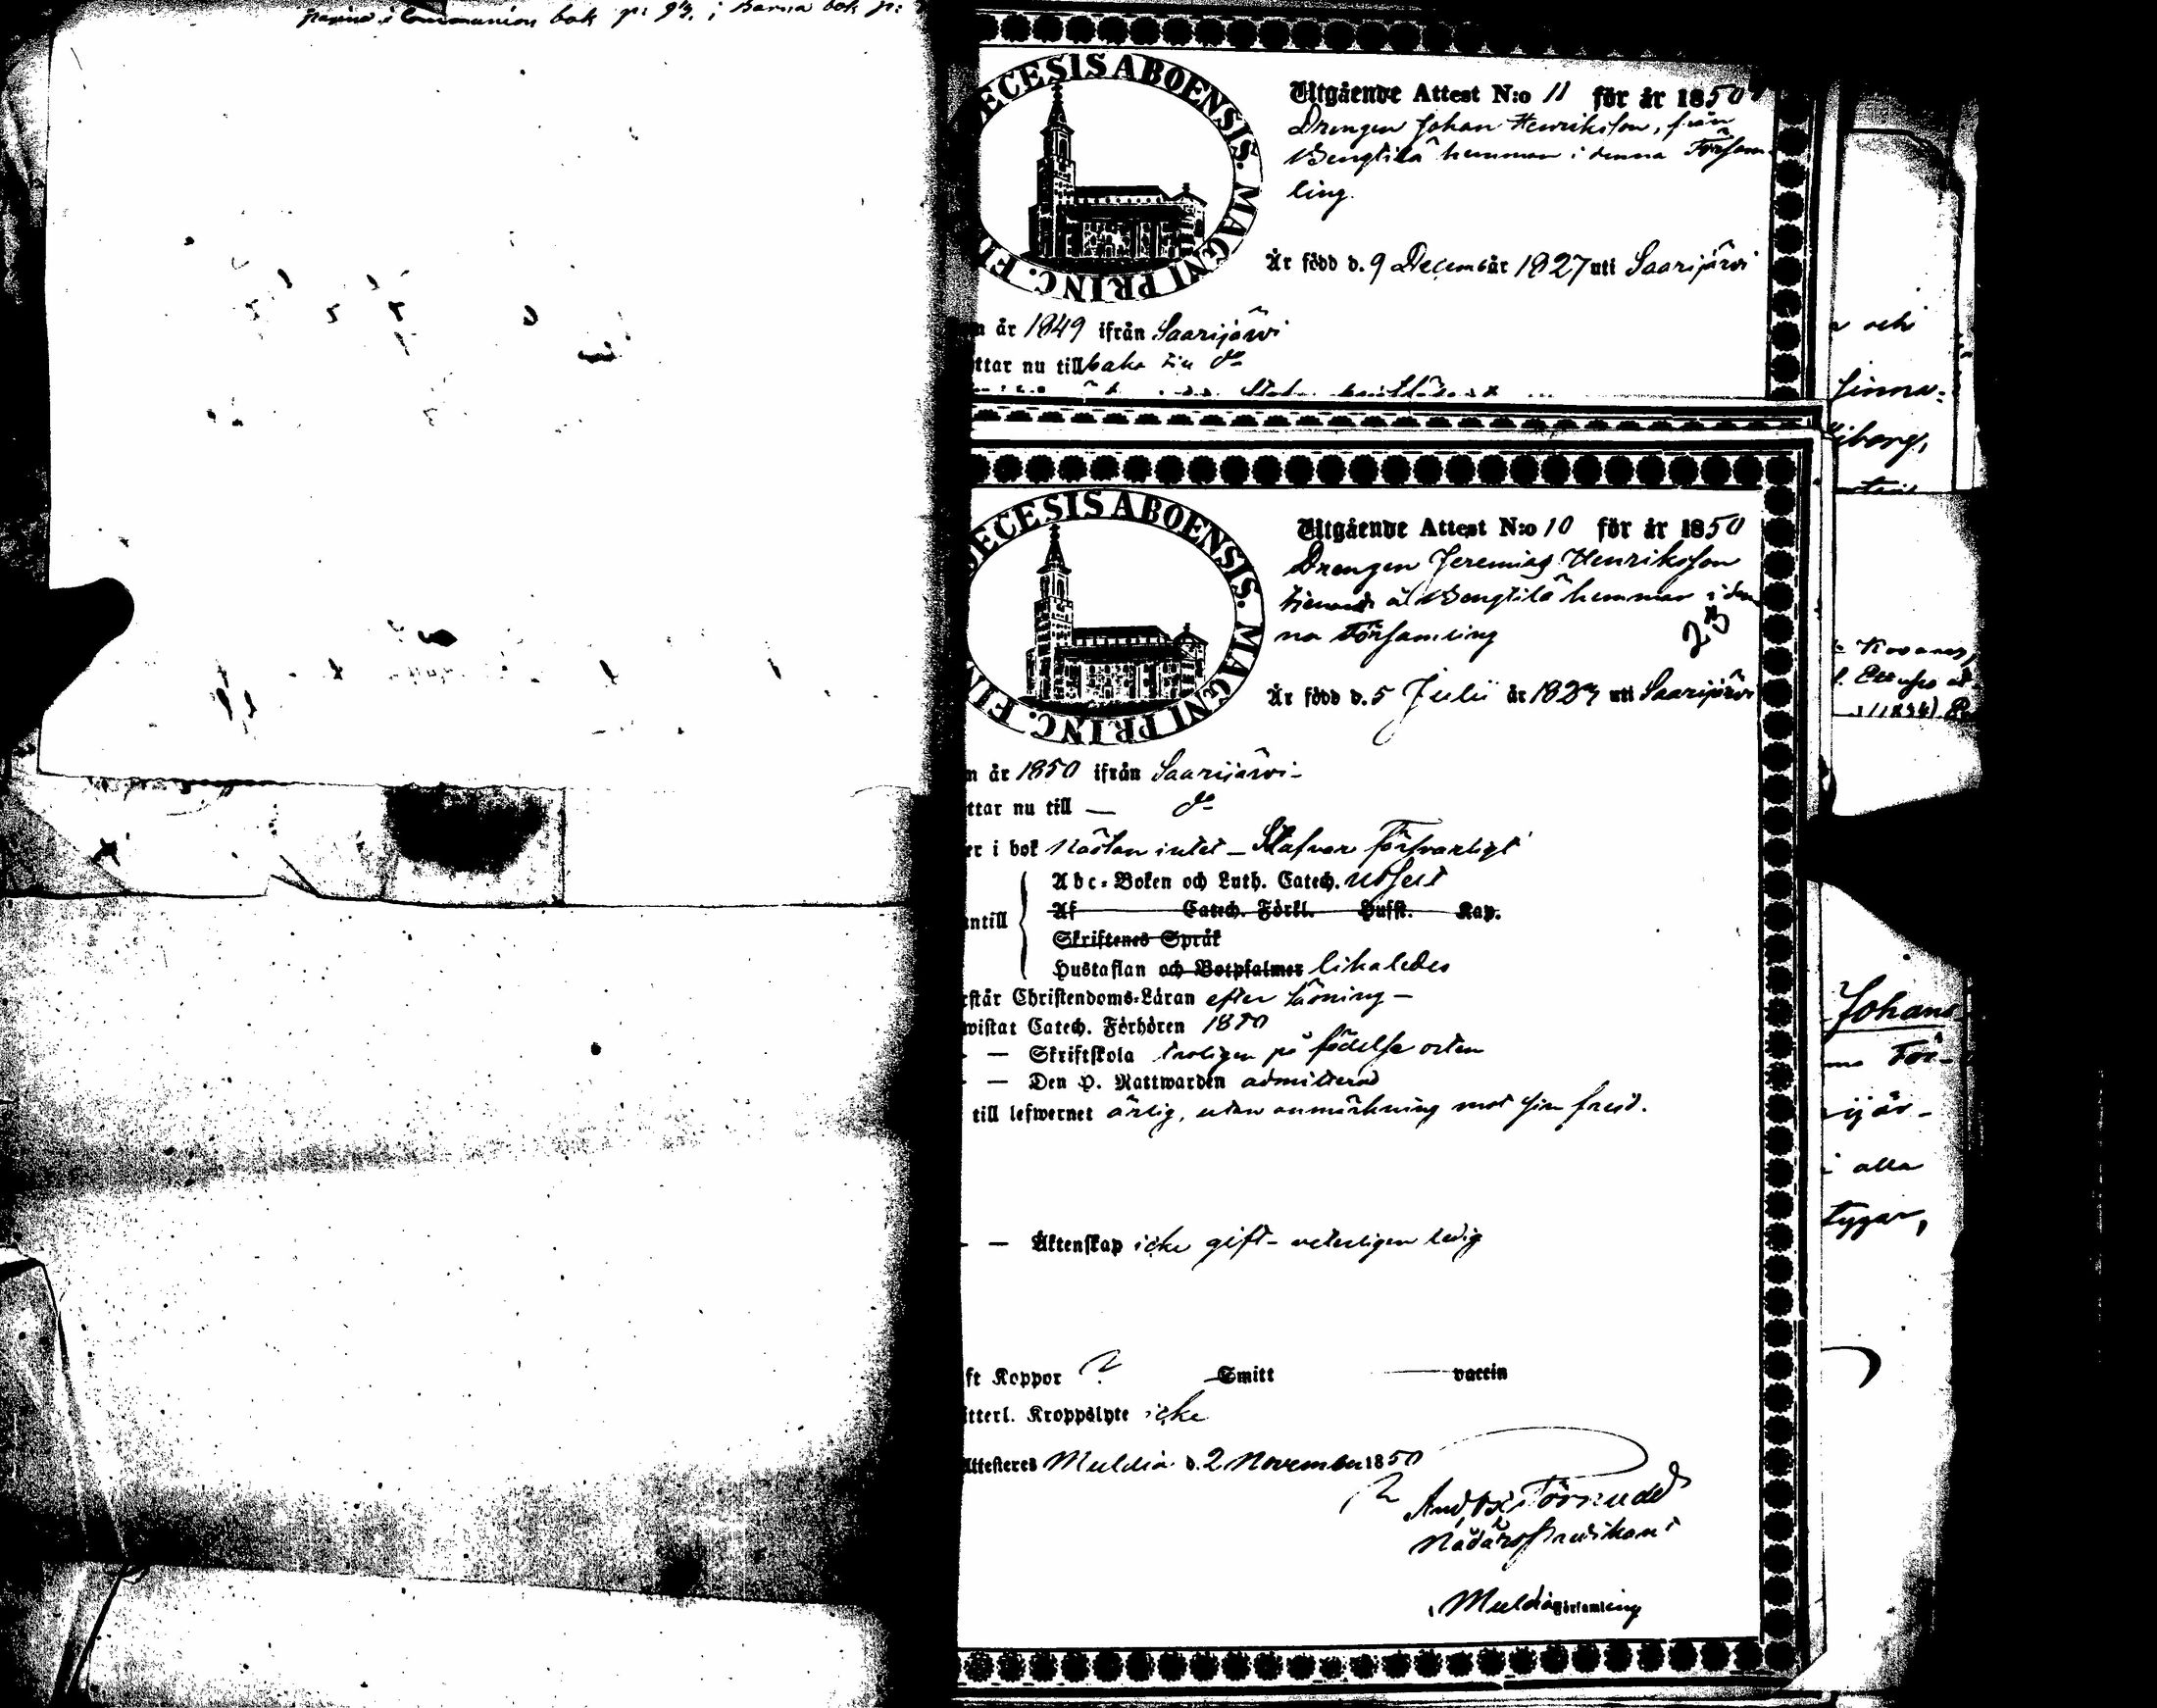 i Communion bok p: 93, i Barna bok p:
DIECESIS ABOENSIS. MAGNI PRINC. FI
Utgående Attest N:o 11 för år 1850
Drengen Johan Henriksson, från
Bengtilä hemman i denna Församling.
ling.
Är född d. 9 December 1827 uti Saarijärvi
n år 1849 ifrån Saarijärvi
ttar nu tillbaka till do
ECESIS ABOENSIS. MAGNI PRINC. FIN
Utgående Attest N:o 10 för år 1850
Drengen Jeremias Henriksson
tienande å Bengtilä hemman i den
na Församling
23
Är född d. 5 Julii år 1827 uti Saarijärvi
n år 1850 ifrån Saarijärvi
ttar nu till — do
er i bok nästan intet – Stafvar försvarligt
Abc-Boken och Luth. Catech. utlärt
Af Catech. Förkl. Hufst. Kap.
ntill
Skriftenes Språk
Hustaflan och Botpsalmer likaledes
rstår Christendoms-Läran efter läsning –
wistat Catech. Förhören 1850
— Skriftskola troligen på födelse orten
— Den H. Nattwarden admitterad
till lefwernet ärlig, utan anmärkning mot sin frejd.
— Äktenskap icke gift – veterligen ledig
ft Koppor ? Smitt vaccin
tterl. Kroppslyte icke
Attesteres Muldia d. 2 November 1850
And. Törnudd
Nådårs Predikant
i Muldia Församling
och
finna:
iborg,
Kovanen,
Johans
För-
ijär-
i alla
tygar,